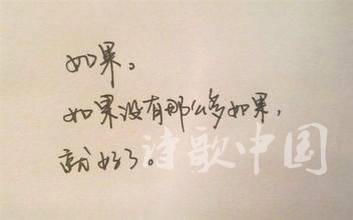 如果。
如果没有那么多如果，
就好了。
诗歌中国